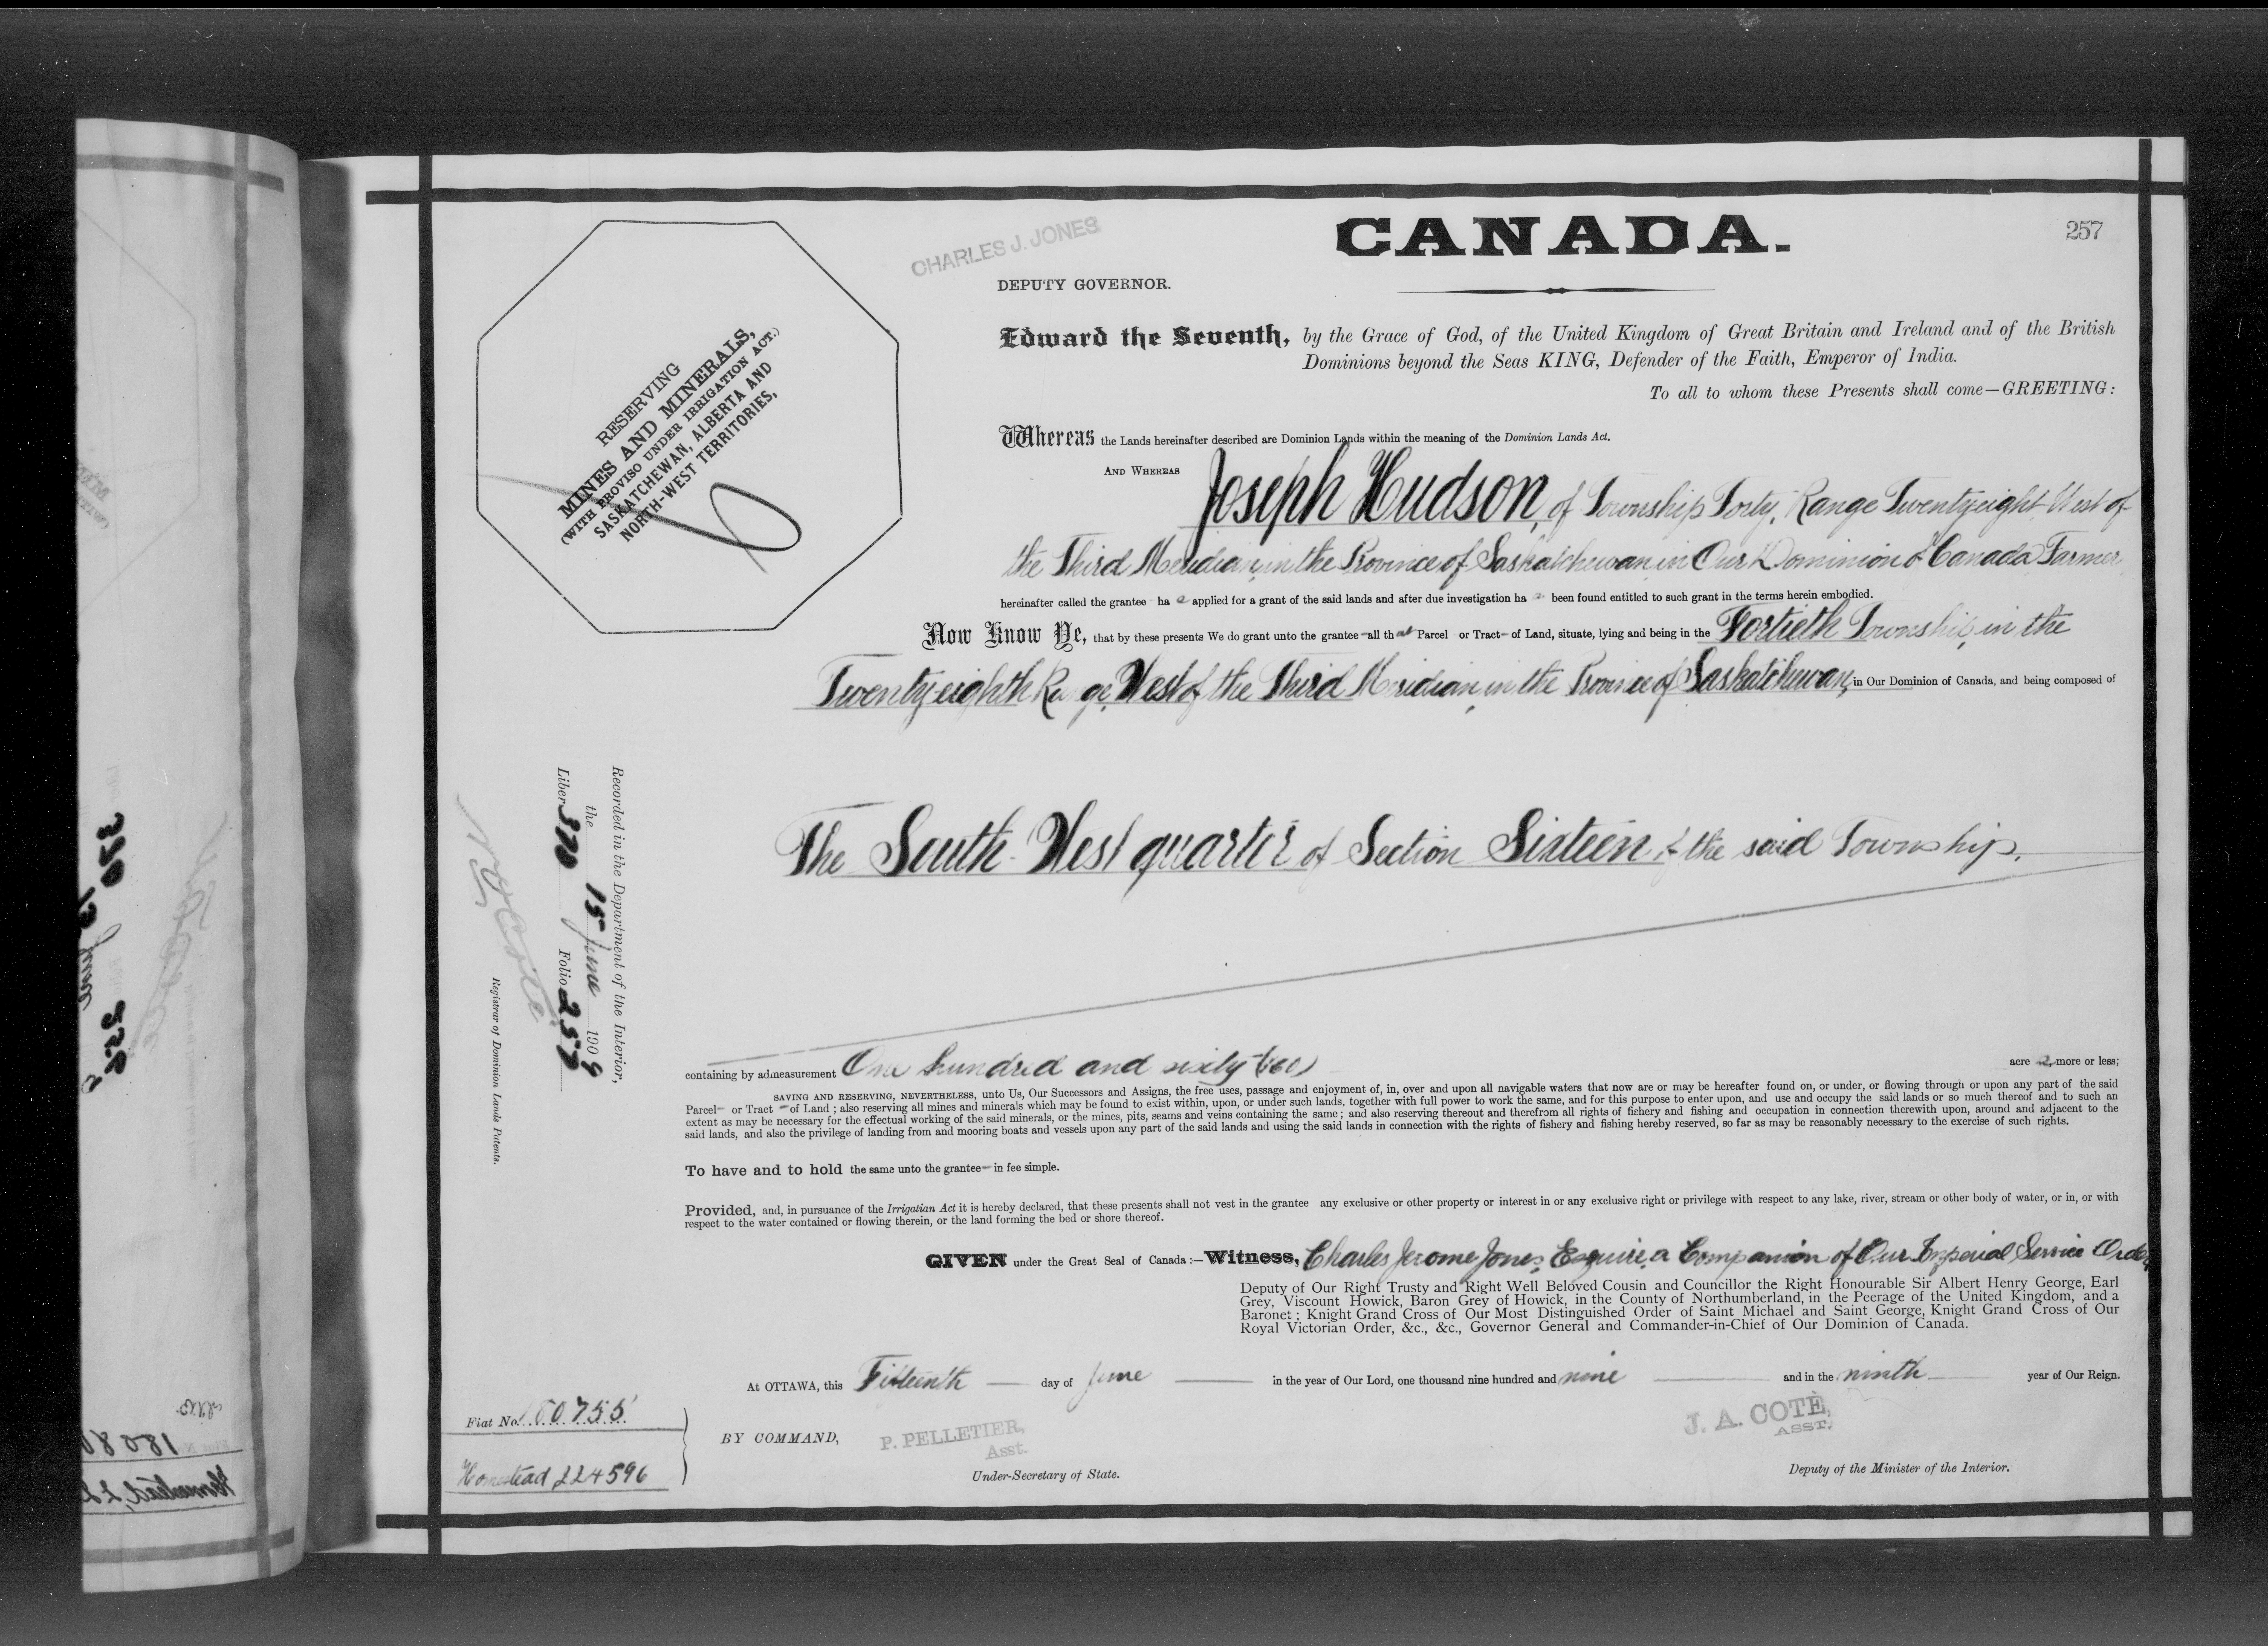 257
CHARLES J. JONES
CANADA.
DEPUTY GOVERNOR.
RESERVING
MINES AND MINERALS,
(WITH PROVISO UNDER IRRIGATION ACT.)
SASKATCHEWAN, ALBERTA AND
NORTH-WEST TERRITORIES,
Edward the Seventh, by the Grace of God, of the United Kingdom of Great Britain and Ireland and of the British
Dominions beyond the Seas KING, Defender of the Faith, Emperor of India.
To all to whom these Presents shall come—GREETING:
Whereas the Lands hereinafter described are Dominion Lands within the meaning of the Dominion Lands Act.
AND WHEREAS Joseph Hudson, of Township Forty, Range Twentyeight West of
the Third Meridian, in the Province of Saskatchewan, in Our Dominion of Canada, Farmer,
hereinafter called the grantee ha applied for a grant of the said lands and after due investigation ha been found entitled to such grant in the terms herein embodied.
Now Know Ye, that by these presents We do grant unto the grantee all that Parcel or Tract of Land, situate, lying and being in the Fortieth Township, in the
Twentyeighth Range, West of the Third Meridian, in the Province of Saskatchewan, in Our Dominion of Canada, and being composed of
The South West quarter of Section Sixteen of the said Township.
Recorded in the Department of the Interior,
the 15 June 1909
Liber 370 Folio 257
Registrar of Dominion Lands Patents.
containing by admeasurement One hundred and sixty (160) acres, more or less;
SAVING AND RESERVING, NEVERTHELESS, unto Us, Our Successors and Assigns, the free uses, passage and enjoyment of, in, over and upon all navigable waters that now are or may be hereafter found on, or under, or flowing through or upon any part of the said
Parcel or Tract of Land ; also reserving all mines and minerals which may be found to exist within, upon, or under such lands, together with full power to work the same, and for this purpose to enter upon, and use and occupy the said lands or so much thereof and to such an
extent as may be necessary for the effectual working of the said minerals, or the mines, pits, seams and veins containing the same ; and also reserving thereout and therefrom all rights of fishery and fishing and occupation in connection therewith upon, around and adjacent to the
said lands, and also the privilege of landing from and mooring boats and vessels upon any part of the said lands and using the said lands in connection with the rights of fishery and fishing hereby reserved, so far as may be reasonably necessary to the exercise of such rights.
To have and to hold the same unto the grantee in fee simple.
Provided, and, in pursuance of the Irrigatian Act it is hereby declared, that these presents shall not vest in the grantee any exclusive or other property or interest in or any exclusive right or privilege with respect to any lake, river, stream or other body of water, or in, or with
respect to the water contained or flowing therein, or the land forming the bed or shore thereof.
GIVEN under the Great Seal of Canada :—Witness, Charles Jerome Jones, Esquire, a Companion of Our Imperial Service Order,
Deputy of Our Right Trusty and Right Well Beloved Cousin and Councillor the Right Honourable Sir Albert Henry George, Earl
Grey, Viscount Howick, Baron Grey of Howick, in the County of Northumberland, in the Peerage of the United Kingdom, and a
Baronet ; Knight Grand Cross of Our Most Distinguished Order of Saint Michael and Saint George, Knight Grand Cross of Our
Royal Victorian Order, &c., &c., Governor General and Commander-in-Chief of Our Dominion of Canada.
At OTTAWA, this Fifteenth day of June in the year of Our Lord, one thousand nine hundred and nine and in the ninth year of Our Reign.
Fiat No. 180755
Homestead 224596
BY COMMAND,
P. PELLETIER,
Asst.
Under-Secretary of State.
J. A. COTÈ,
ASST.
Deputy of the Minister of the Interior.